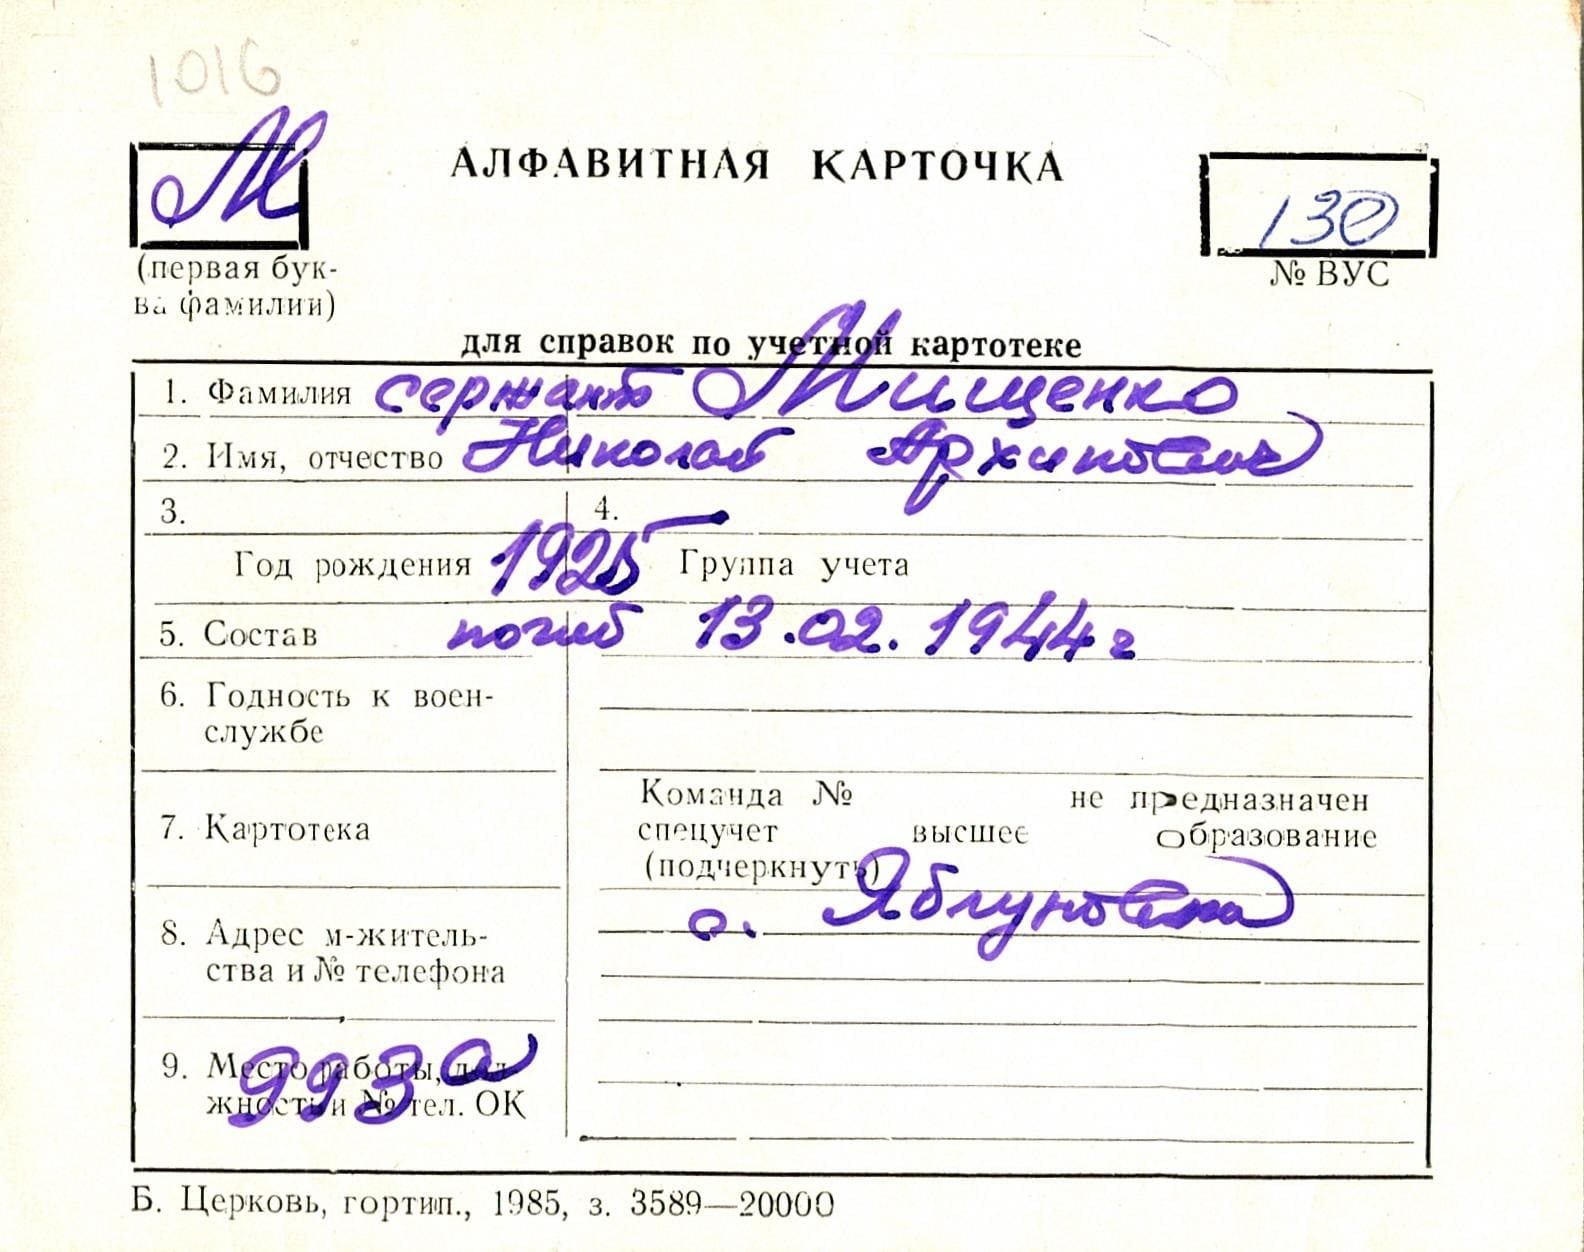 1016
М
АЛФАВИТНАЯ КАРТОЧКА
130
(первая бук-
ва фамилии)
№ ВУС
для справок по учетной картотеке
1. Фамилия сержант Мищенко
2. Имя, отчество Николай Архипович
3. 4.
Год рождения 1925 Группа учета
5. Состав погиб 13.02.1944 г
6. Годность к воен-
службе
7. Картотека
Команда № не предназначен
спецучет высшее образование
(подчеркнуть)
8. Адрес м-житель-
ства и № телефона
с. Яблуновка
9. Место работы, дол
жность и № тел. ОК
993а
Б. Церковь, гортип., 1985, з. 3589—20000